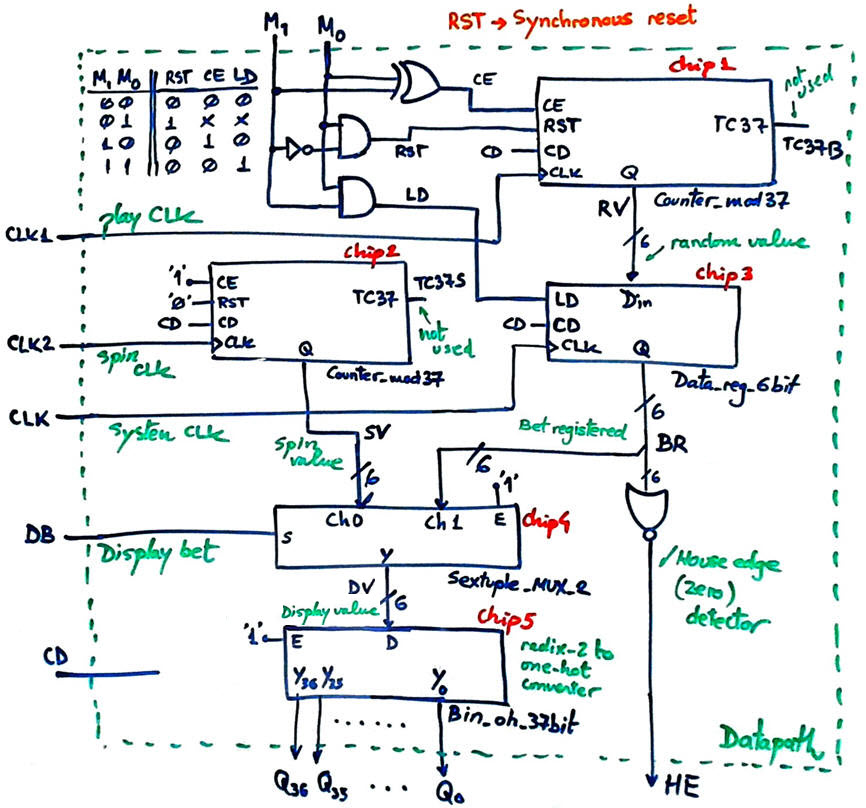 RST → Synchronous reset
M1 M0
M1 M0 RST CE LD
0 0 0 0 0
0 1 1 x x
1 0 0 1 0
1 1 0 0 1
CE
RST
LD
chip1
CE
RST
CD CD
CLK
TC37
Q
not used
TC37B
Counter_mod37
RV
6
random value
CLK1 play CLK
chip2
'1' CE
'0' RST
CD CD
CLK
TC37
Q
TC37S
not used
Counter_mod37
chip3
LD
CD CD
CLK
Din
Q
Data_reg_6bit
CLK2 spin CLK
CLK system CLK
SV
spin value
6
6
Bet registered
6
BR
6
DB Display bet
S
Ch0 Ch1 E
'1'
chip4
Y
Sextuple_MUX_2
DV
6
Display value
House edge
(zero)
detector
chip5
'1' E D
Y36 Y25 Y0
redix-2 to
one-hot
converter
Bin_oh_37bit
CD
Q36 Q35 ... Q0
HE
Datapath